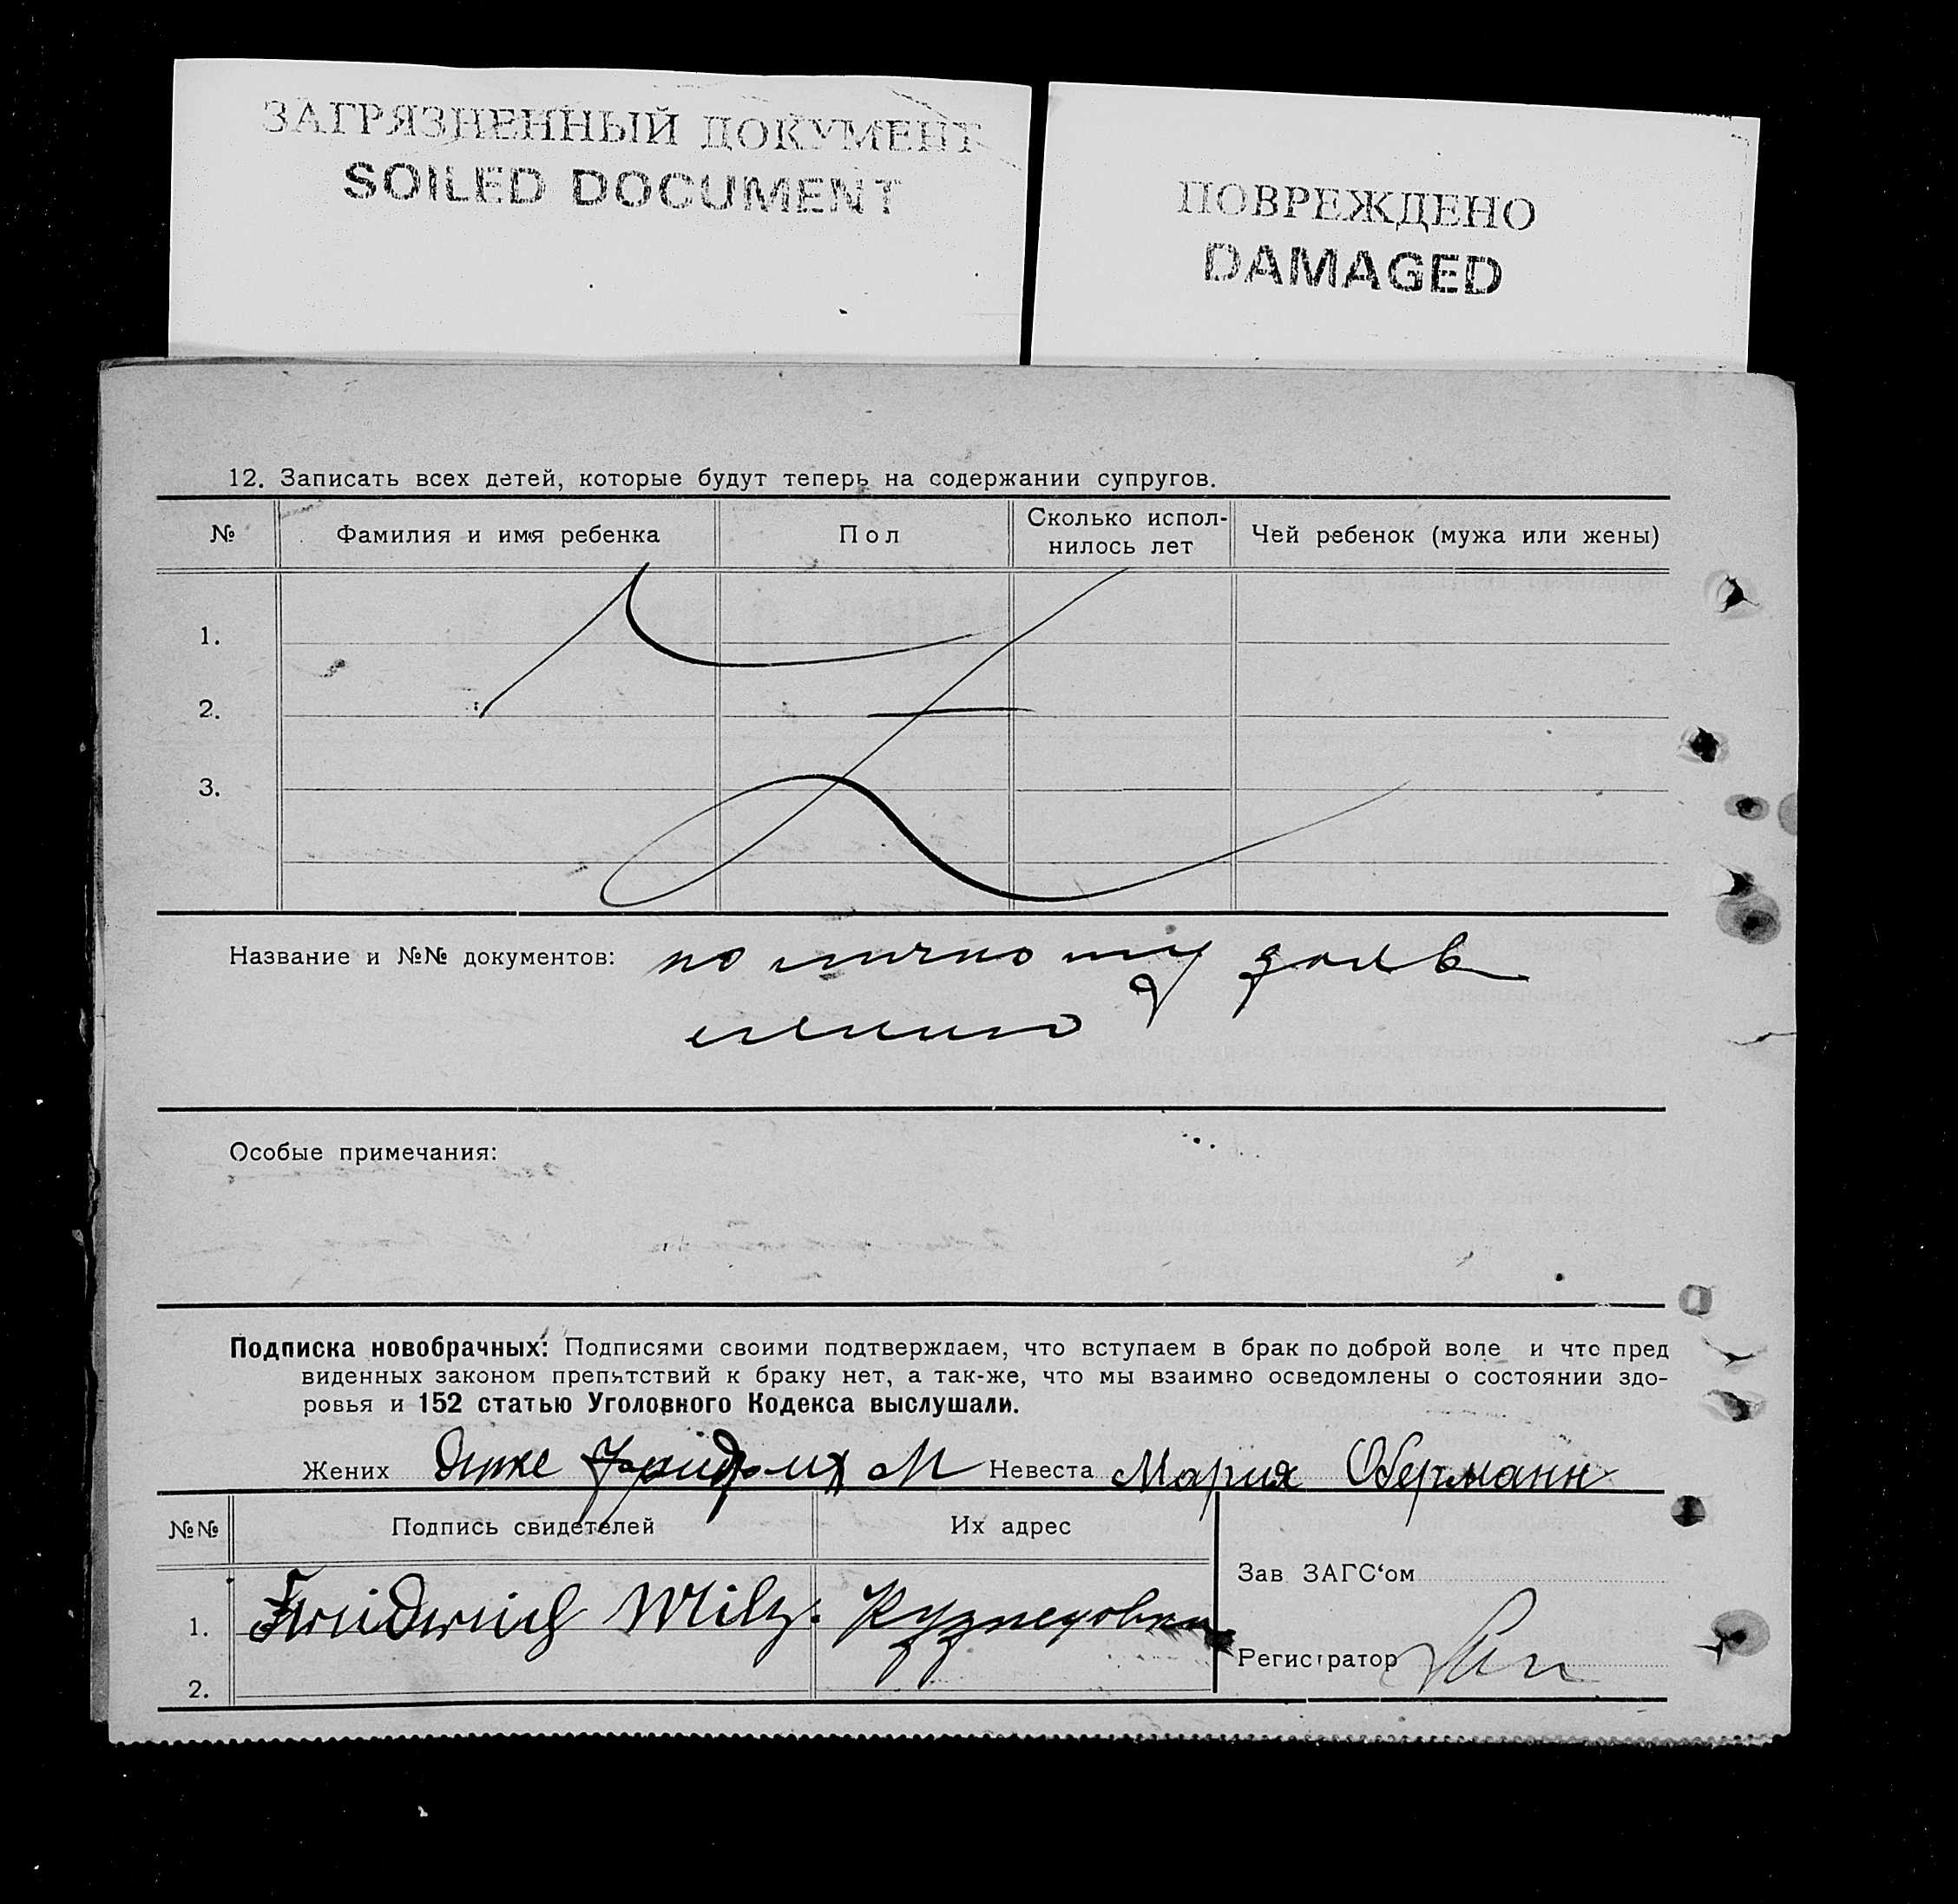 ЗАГРЯЗНЕННЫЙ ДОКУМЕНТ
SOILED DOCUMENT
ПОВРЕЖДЕНО
DAMAGED
12. Записать всех детей, которые будут теперь на содержании супругов.
№ Фамилия и имя ребенка Пол Сколько испол-нилось лет Чей ребенок (мужа или жены)
1.
2.
3.
Название и №№ документов: по личному заяв
лению
Особые примечания:
Подписка новобрачных: Подписями своими подтверждаем, что вступаем в брак по доброй воле и что пред
виденных законом препятствий к браку нет, а так-же, что мы взаимно осведомлены о состоянии здо-
ровья и 152 статью Уголовного Кодекса выслушали.
Жених Фридрих М Невеста Мария Оберманн
№№ Подпись свидетелей Их адрес
Зав ЗАГС‘ом
1. Friedrich Milz.
Регистратор
2.